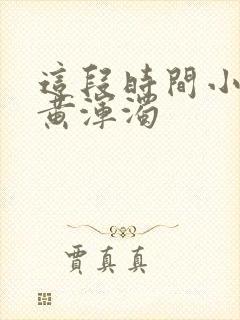 這段時間小
黃渾濁
賈真真